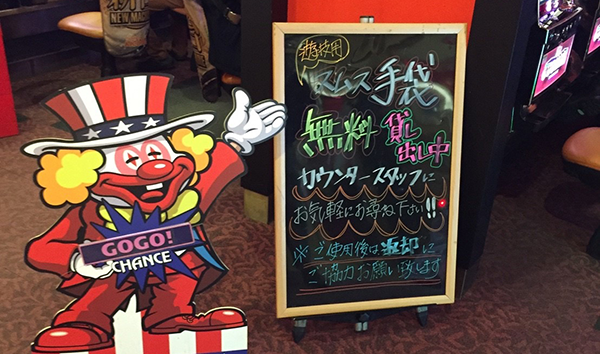 遊技用
スムス手袋
無料 貸し
出し中
カウンタースタッフに
お気軽にお尋ね下さい!!
※ご使用後は返却に
ご協力お願い致します
GOGO!
CHANCE
NEW MAC